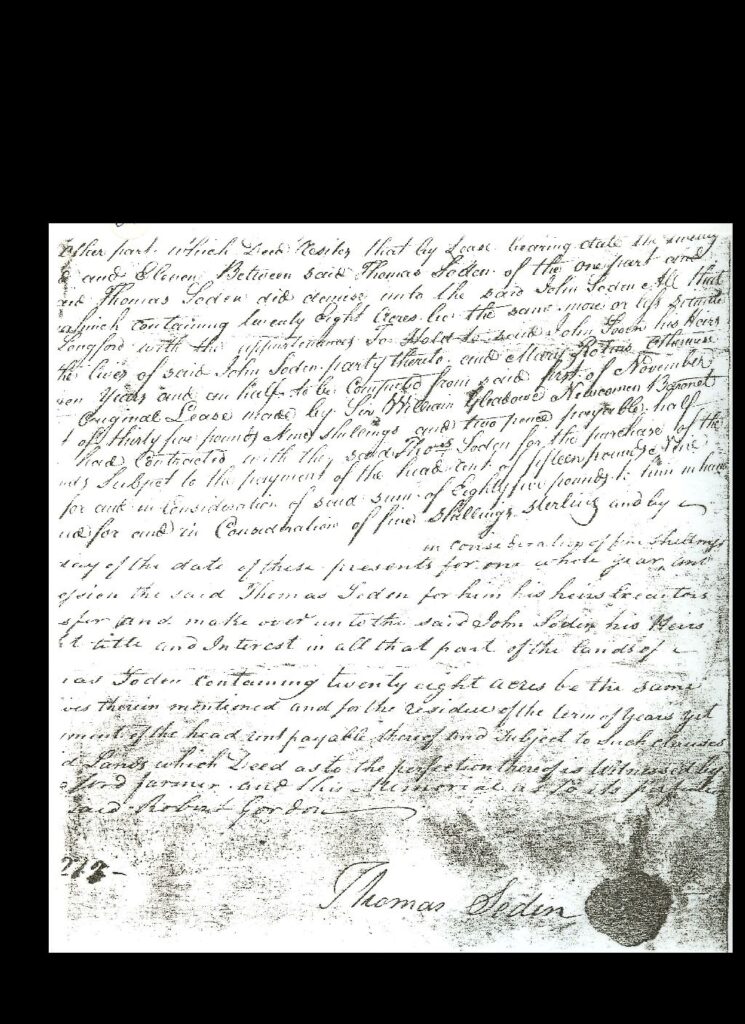 other part which Deed Recites that by Lease bearing date the
and Eleven Between said Thomas Soden of the one part and
Thomas Soden did demise unto the said John Soden All that
which containing twenty eight Acres be the same more or less situate
Longford with the appurtenances To Hold to said John Soden his Heirs
the lives of said John Soden party thereto and Mary Otherwise
Years and an half to be Computed from said first of November
Original Lease made by Sir William Gleadowe Newcomen Baronet
of thirty five pounds Nine shillings and two pence payable half
had Contracted with the said Thos Soden for the purchase of the
Subject to the payment of the head rent of fifteen pounds Nine
for and in Consideration of said sum of Eighty five pounds to him in hand
for and in Consideration of five shillings sterling and by
in consideration of five shillings
day of the date of these presents for one whole year and
the said Thomas Soden for him his heirs Executors
and make over unto the said John Soden his Heirs
title and Interest in all that part of the lands of
Soden containing twenty eight acres be the same
therein mentioned and for the residue of the term of Years yet
of the head rent payable thereof and Subject to such clauses
Lands which Deed as to the perfection thereof is Witnessed by
farmer and this Memorial as to its
said Robert Gordon
Thomas Soden